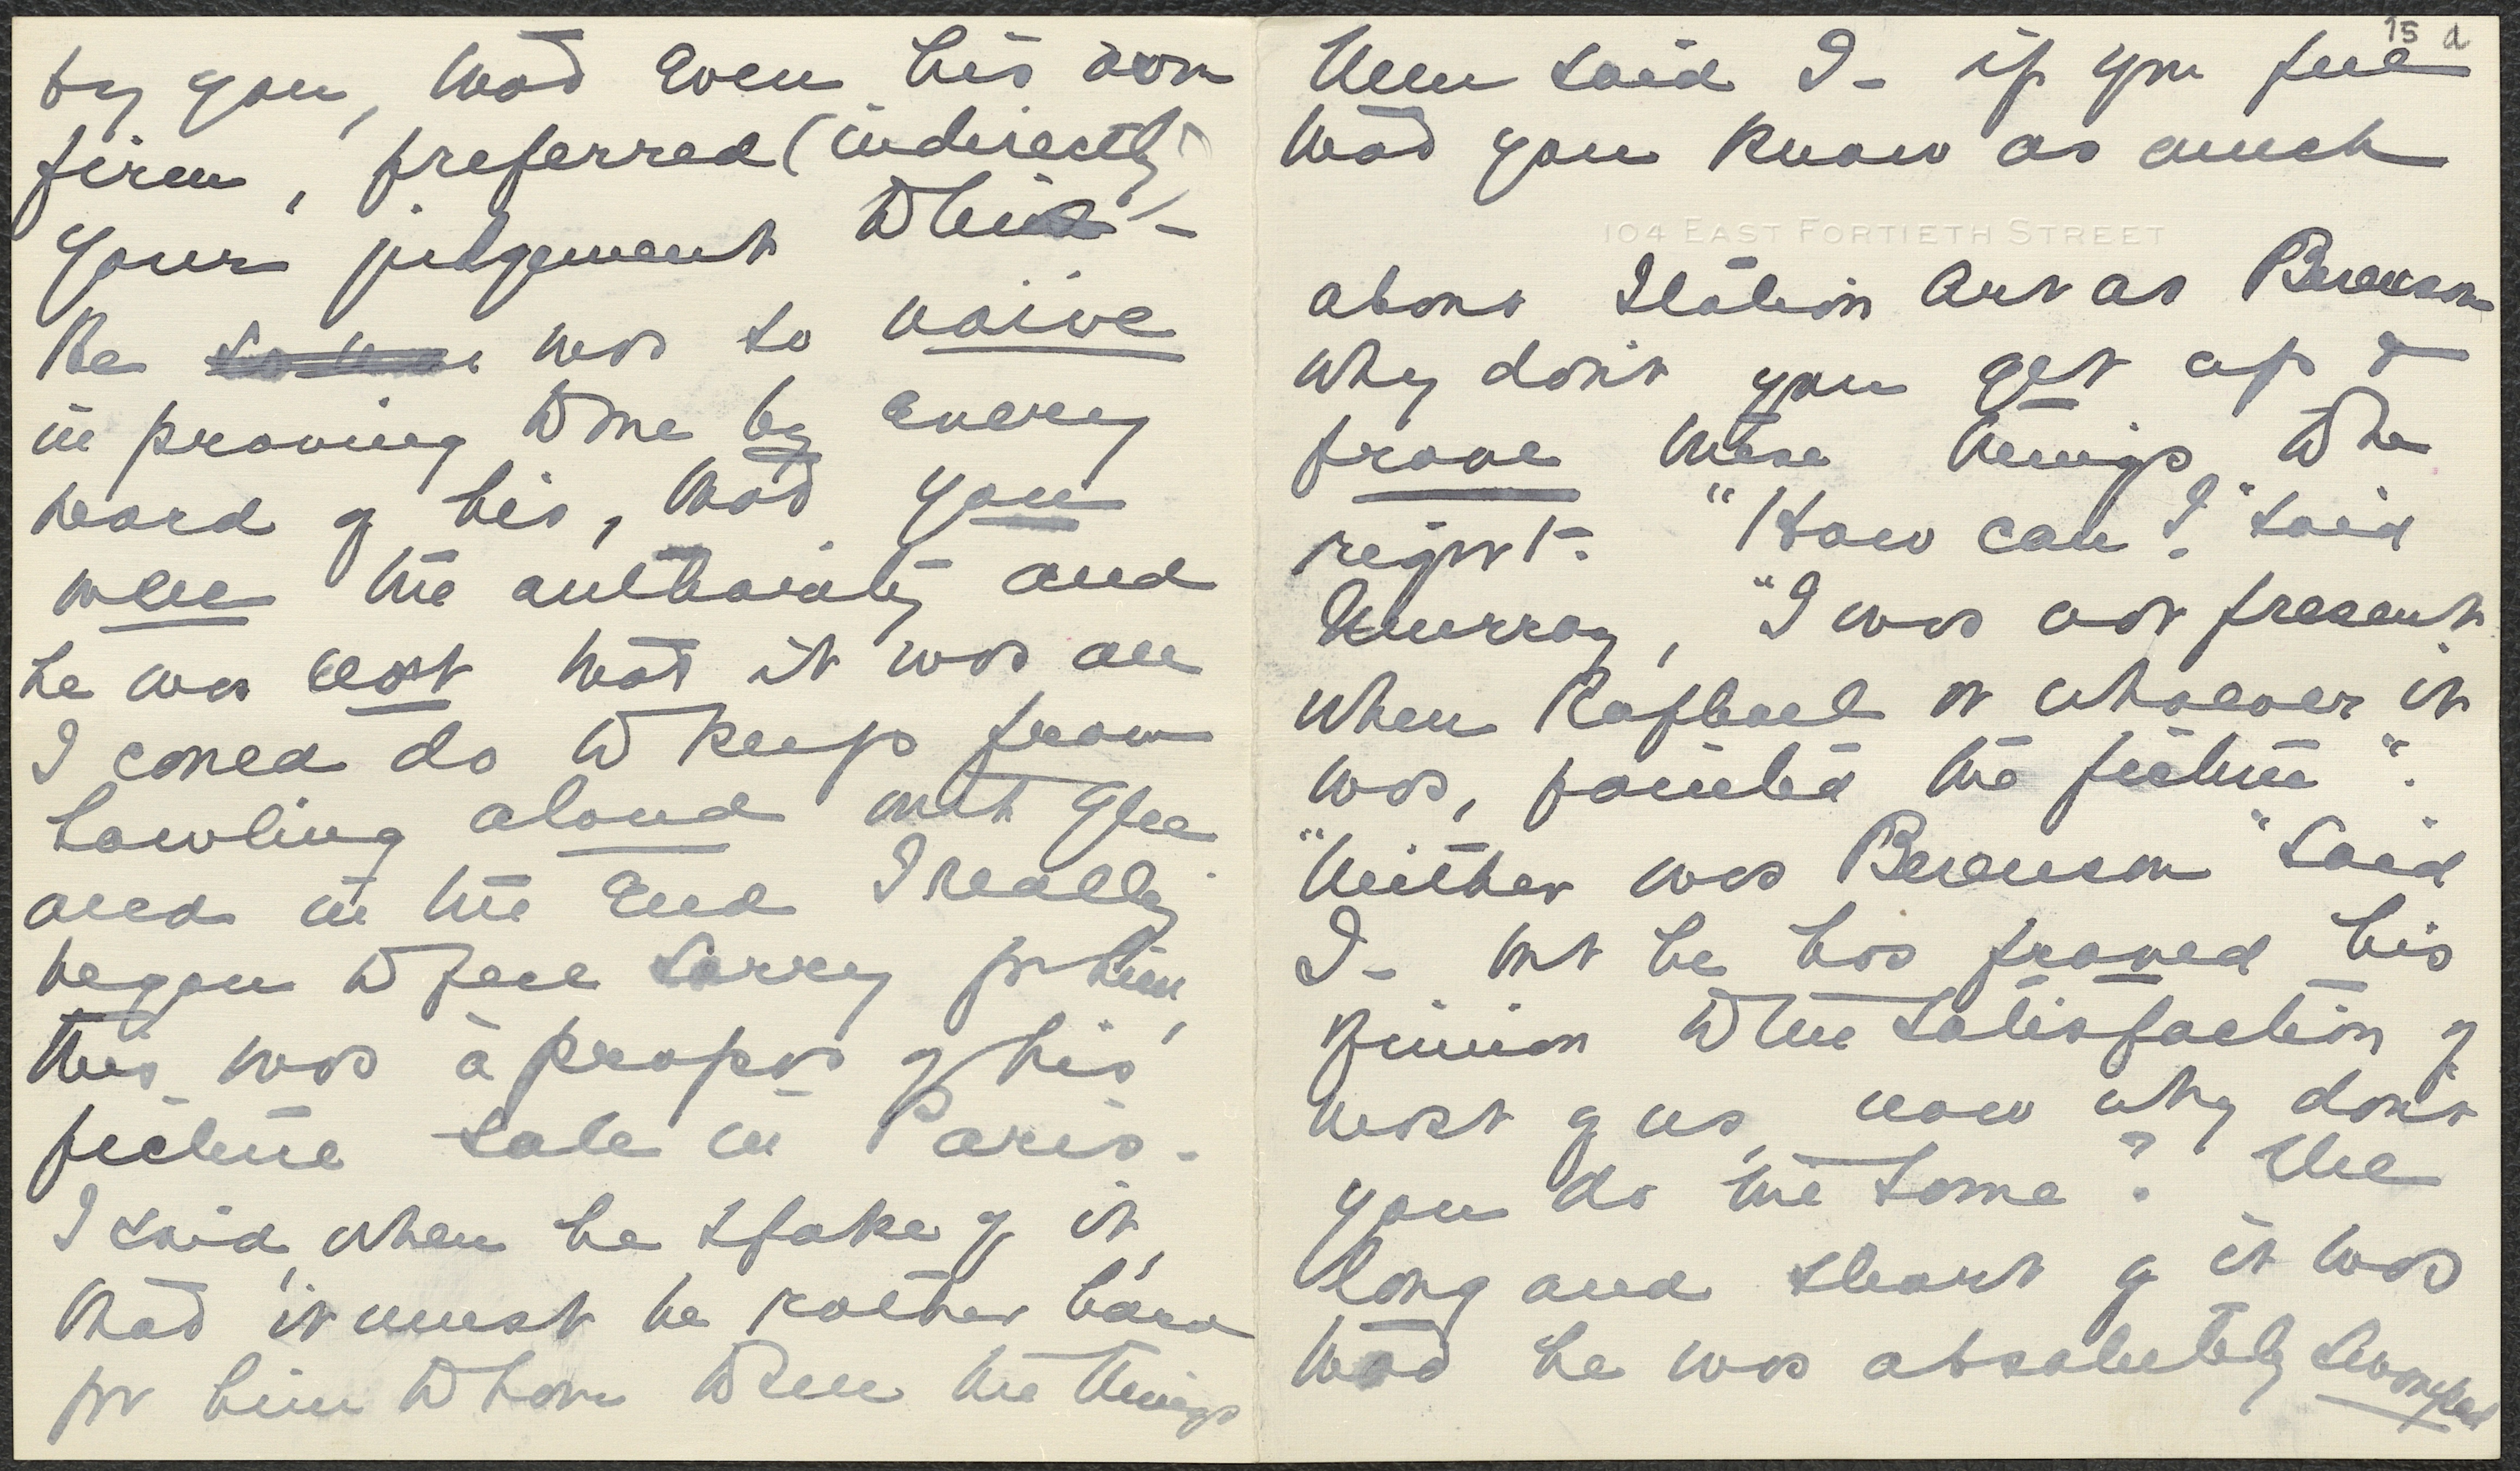 by you, that even his own
firm, preferred (indirectly)
your judgement to his -
He was so naive
in proving to me by every
word of his, that you
were the authority and
he was not that it was all
I could do to keep from
howling aloud with glee
and in the end I really
began to feel sorry for him,
this was à propos of his
picture sale in Paris -
I said, when he spoke of it,
that it must be rather hard
for him to have to sell the things
15 d
Then said I - if you feel
that you know as much
104 EAST FORTIETH STREET
about Italian Art as Berenson
why don't you get up &
prove these things to be
right - "How can I?" said
Murray, "I was not present
when Raphael or whoever it
was, painted the picture".
"Neither was Berenson" said
I - but he has proved his
opinion to the satisfaction of
most of us, now why don't
you do the same? The
long and short of it was
that he was absolutely swamped